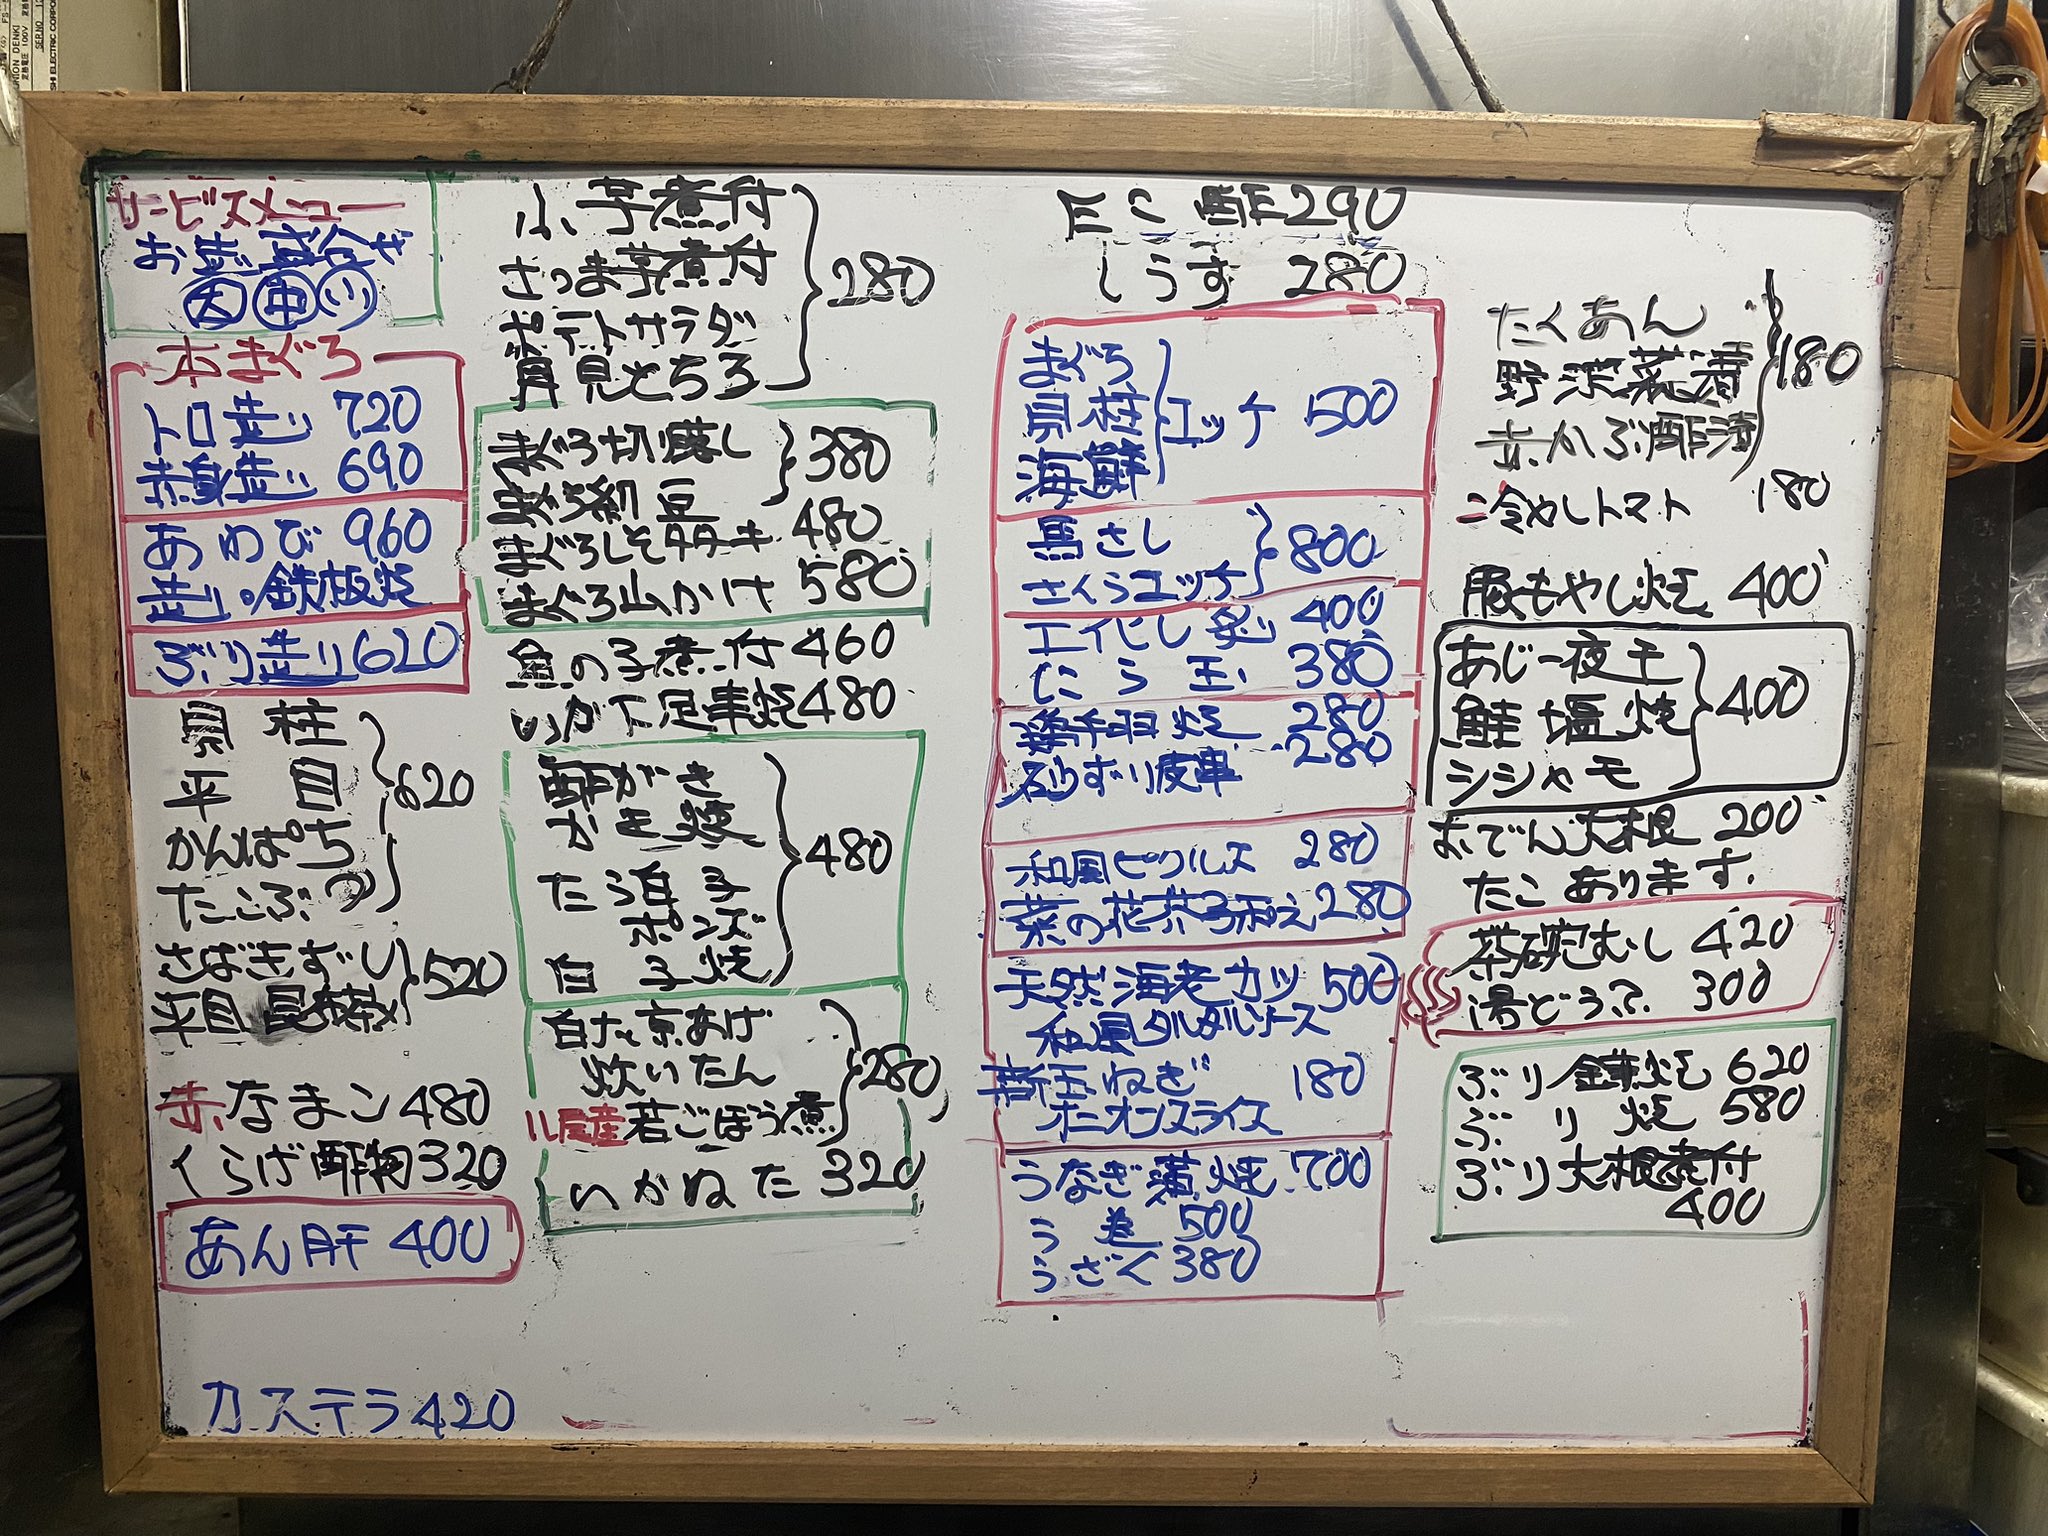 サービスメニュー
お造り盛合せ
大 中 小
本まぐろ
トロ造り 720
赤身造り 690
あわび 960
造り・鉄板焼
ぶり造り 620
貝柱
平目
かんぱち
たこぶつ
620
さばきずし
平目昆布〆
520
赤なまこ 480
くらげ酢物 320
あん肝 400
カステラ 420
小芋煮付
さつま芋煮付
ポテトサラダ
月見とろろ
280
まぐろ切落し
納豆
380
まぐろしそ叩き 480
まぐろ山かけ 580
魚の子煮付 460
いか下足串焼 480
酢がき
かき
たら白子
ポンズ
白子焼
480
白菜と京あげ
炊いたん
八尾産若ごぼう煮
280
いかぬた 320
たこ酢 290
しらす 280
まぐろ
貝柱
海鮮
ユッケ 500
馬さし
さくらユッケ
800
エイヒレ炙り 400
にら玉 380
鶏手羽焼 280
砂ずり皮串 280
和風ピクルス 280
菜の花辛子和え 280
天然海老カツ 500
和風タルタルソース
葉玉ねぎ 180
オニオンスライス
うなぎ蒲焼 700
う巻 500
うざく 380
たくあん
野沢菜漬
赤かぶ酢漬
180
冷やしトマト 180
豚もやし炒 400
あじ一夜干
鮭塩焼
シシャモ
400
おでん大根 200
たこあります
茶碗むし 420
湯どうふ 300
ぶり鎌焼 620
ぶり焼 580
ぶり大根煮付
400